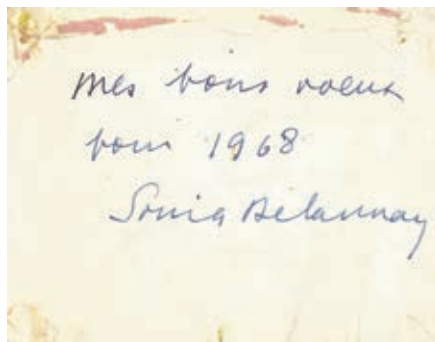 Mes bons voeux
pour 1968
Sonia Delaunay